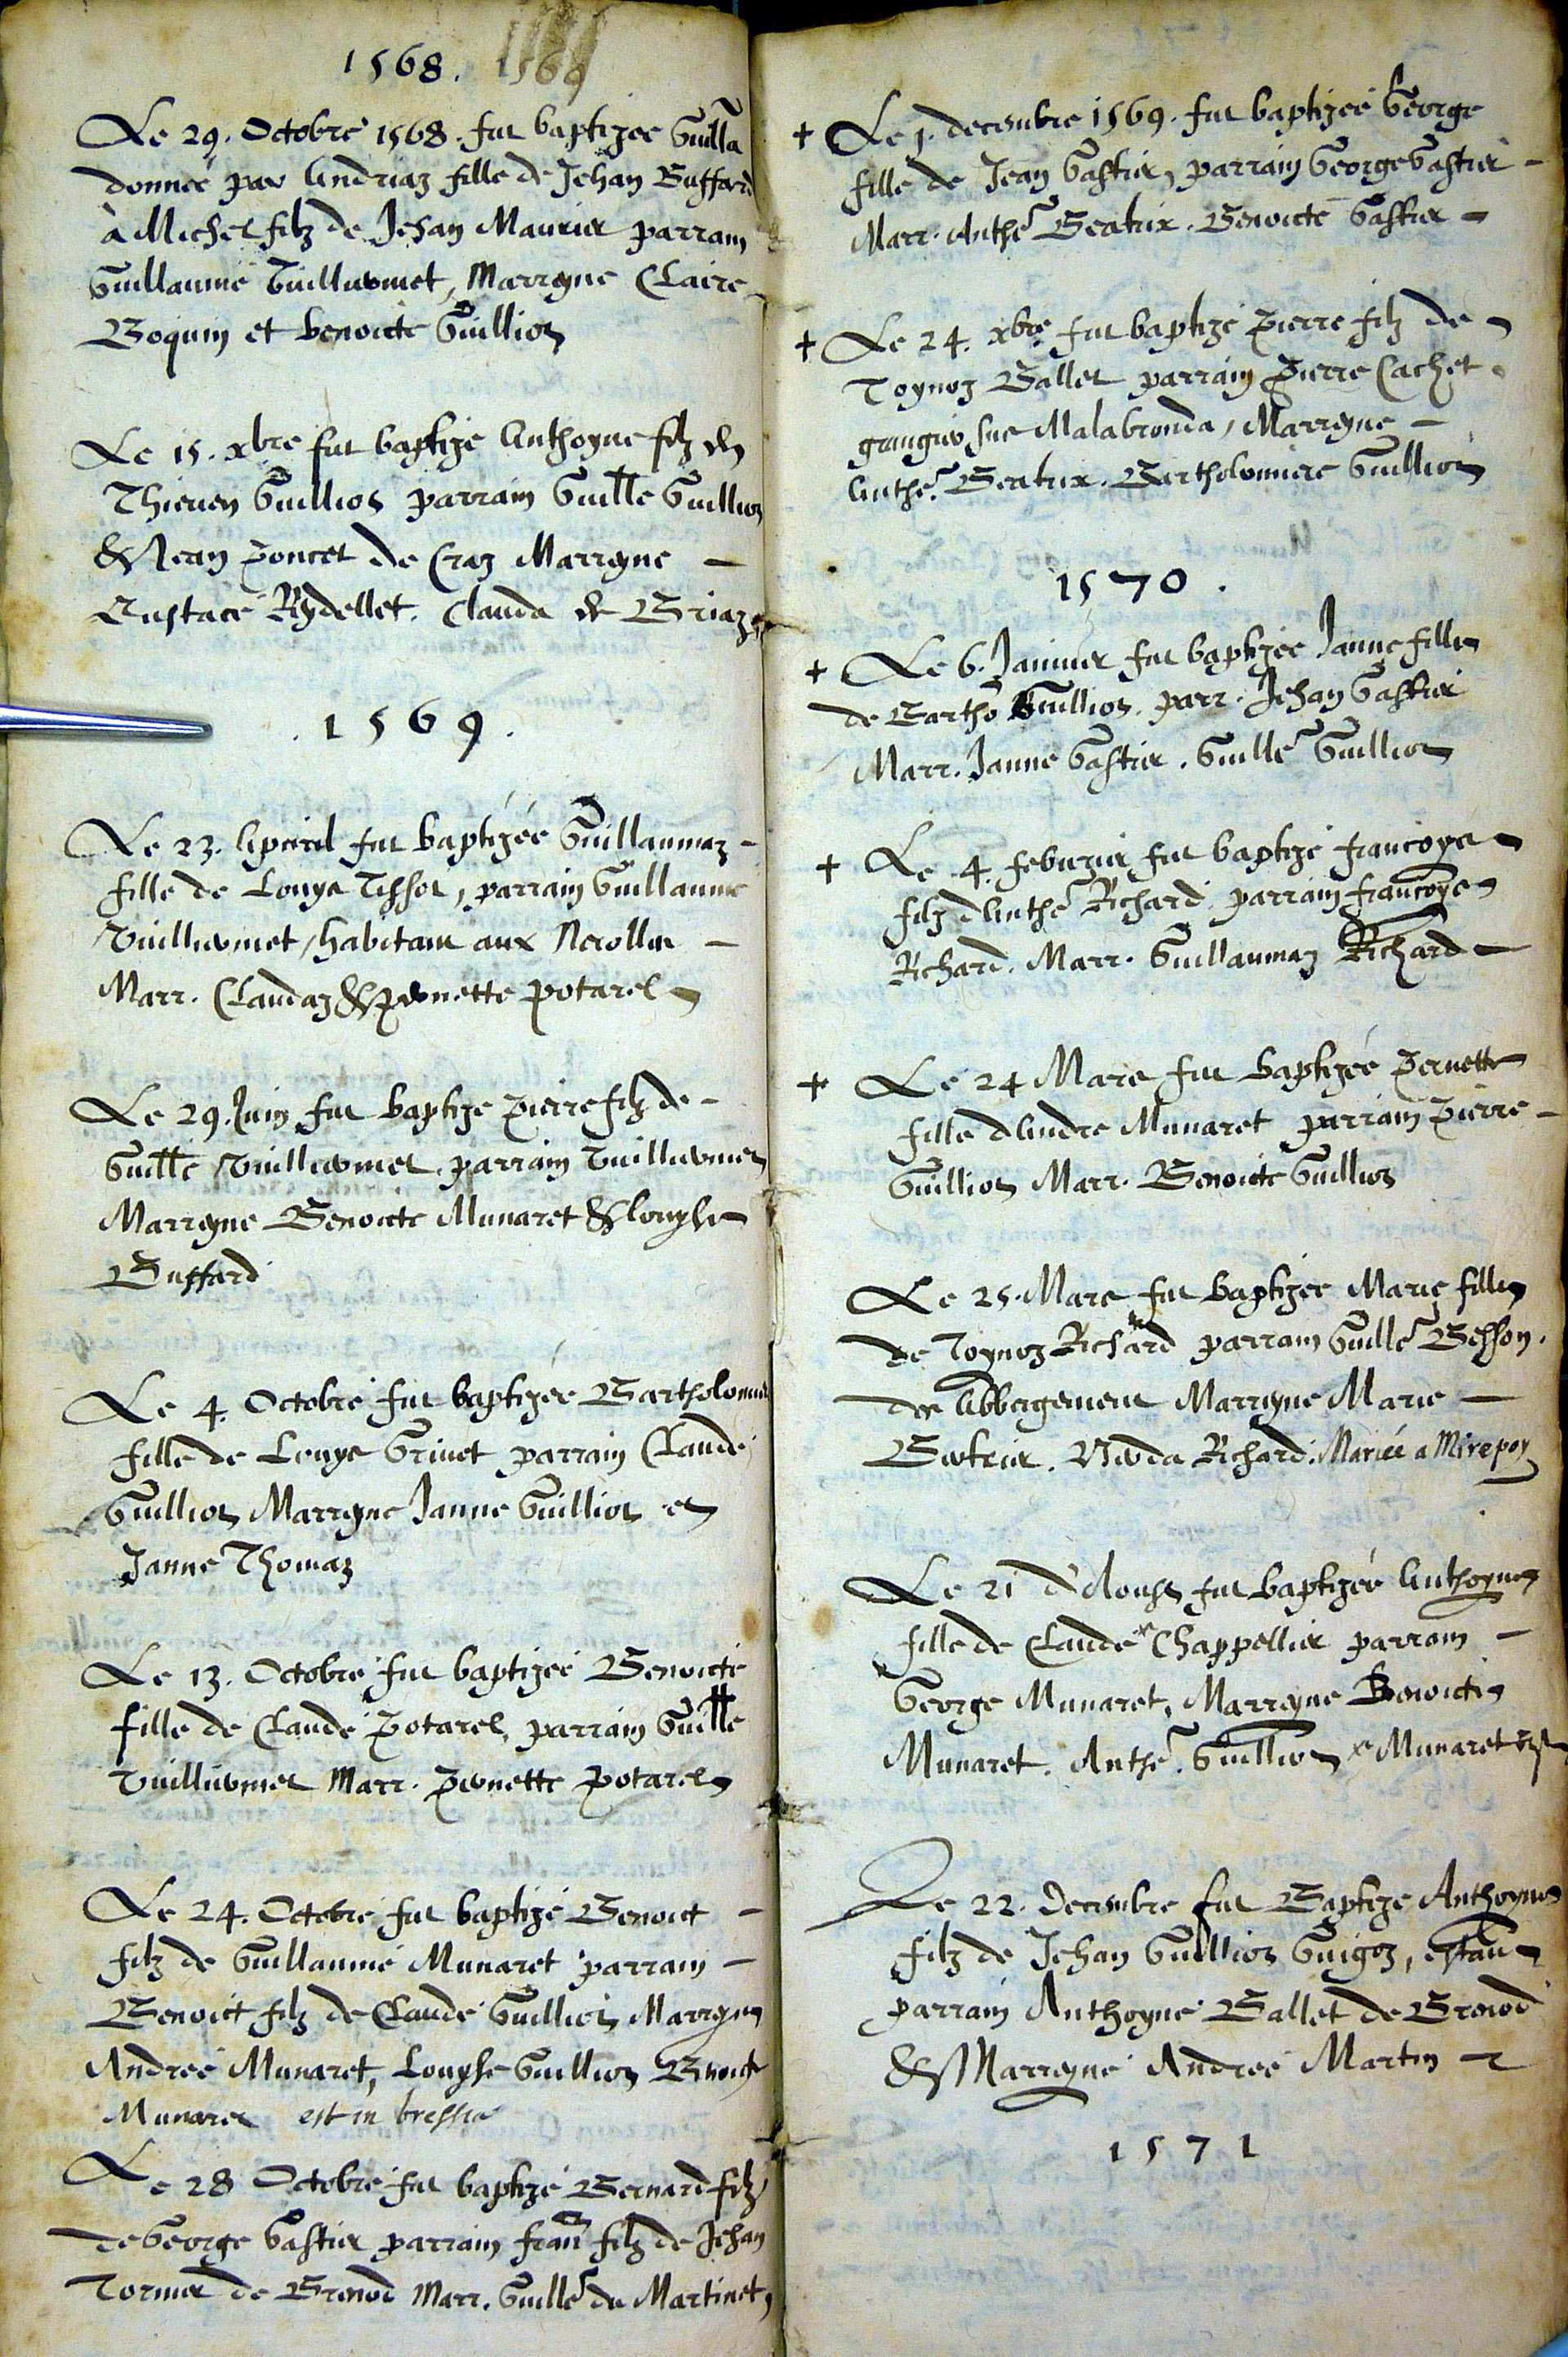 1568. 1569
Le 29. Octobre 1568. fut baptizee Guilla
donnee par Andriaz fille de Jehan Buffard
à Michel filz de Jehan Maurier parrain
Guillaume Vuilliermet, Marryne Claire
Boquin et benoicte Guillion
Le 15. xbre fut baptize Anthoyne filz de
Thieven Guillion parrain Guille Guillion
& Jean Poncet de Craz Marryne
Eustace Rydellet. Clauda de Briaz
1569.
Le 23. Apvril fut baptizée Guillaumaz
fille de Louys Tissot, parrain Guillaume
Vuilliermet, habitant aux Nerolles
Marr. Claudaz & Pernette Potarel
Le 29. Juin fut baptize Pierre filz de
Guille Vuilliermet parrain Vuilliermet
Marryne Benoicte Munaret & Louyse
Buffard
Le 4. Octobre fut baptizée Bartholomie
fille de Louys Grinet parrain Claude
Guillion Marryne Janne Guillion et
Janne Thomaz
Le 13. Octobre fut baptizée Benoicte
fille de Claude Potarel, parrain Guille
Vuilliermet Marr. Pernette Potarel
Le 24. Octobre fut baptizé Benoict
filz de Guillaume Munaret parrain
Benoict filz de Claude Guillion Marryne
Andree Munaret, Louyse Guillion Benoicte
Munaret est in bressia
Le 28 Octobre fut baptizé Bernard filz
de George Gastier parrain fran filz de Jehan
Tornier de Brenod Marr. Guille du Martinet
+ Le 1. decembre 1569. fut baptizée George
fille de Jean Gastier, parrain George Gastier
Marr. Anthe Beatrix. Benoicte Gastier
+ Le 24. xbre fut baptizé Pierre filz de
Toynoz Ballet parrain Pierre Cachet
grangier sur Malabronda, Marryne
Anthe. Beatrix. Bartholomiere Guillion
1570.
+ Le 6. Janvier fut baptizée Janne fille
de Bartho Guillion. parr. Jehan Gastier
Marr. Janne Gastier. Guille Guillion
+ Le 4. febvrier fut baptizé francoys
filz dAnthe Richard parrain francoys
Richard. Marr. Guillaumaz Richard
+ Le 24 Mars fut baptizée Pernette
fille dAndre Munaret parrain Pierre
Guillion Marr. Benoicte Guillion
Le 25. Mars fut baptizée Marie fille
de Toynoz Richard parrain Guille Besson.
des Abbergement Marryne Marie
Richard. Mariée a Mirepoy
Le 21 d'Aoust fut baptizée Anthoyne
fille de Claude Chappellier parrain
George Munaret, Marreyne Benoicte
Munaret. Anthe. Guillion Munaret
Le 22. Decembre fut Baptize Anthoyne
filz de Jehan Guillion Guigoz, estan
parrain Anthoyne Ballet de Brenod
& Marreyne Andree Martin
1571